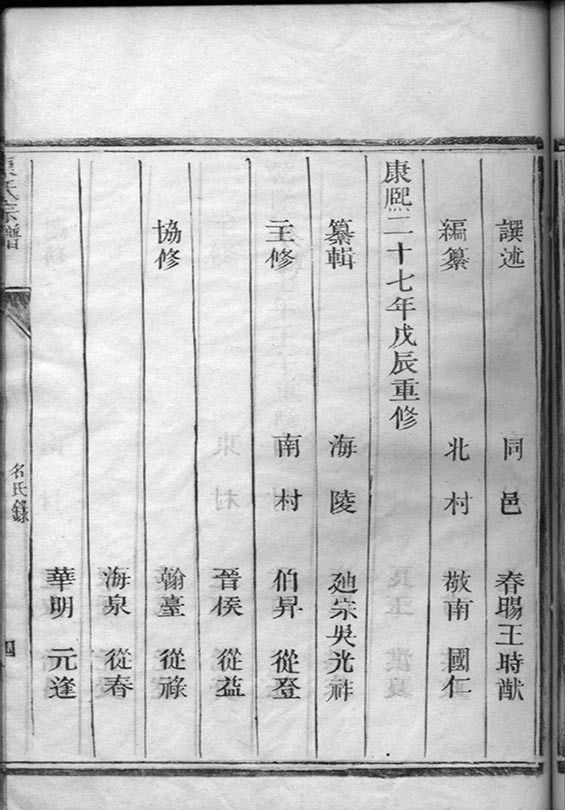 譔述 同邑 春暘王時猷
編纂 北村 敬南 國仁
康熙二十七年戊辰重修
纂輯 海陵 廸宗吳光祚
主修 南村 伯昇 從登
晉侯 從益
協修 翰臺 從祿
海泉 從春
華明 元逢
氏宗譜
名氏錄
四